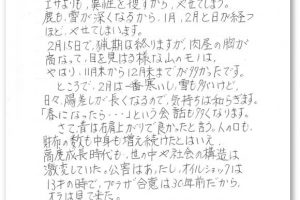 エサよりも、異性を捜すから、やせてしまう。
鹿も、雪が深くなるから、1月、2月と日が経つ
ほど、やせてしまいます。
2月15日で、猟期は終りますが、肉屋の胸が
高なって、目を見はる様な山のモノは、
やはり、11月末から12月末までが多かったです。
ところで、2月は一番寒いし、雪も多いけど、
日々、陽差しが長くなるので、気持ちは和らぎます。
「春になったら・・・」という会話も多くなります。
さて昔は右肩上がりで良かったと言う。人の口も、
財布の数も中身も増え続けたとはいえ、
高度成長時代も、世の中や社会の構造は
激変していた。公害はあったし、オイルショックは
13才の時で、プラザ合意は30年前だから、
オラは目で見てきた。